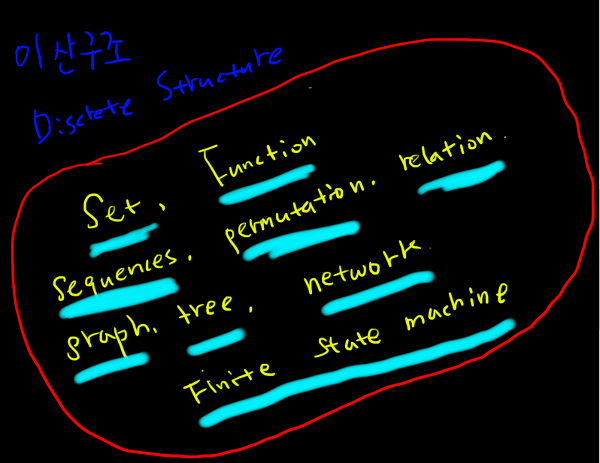 이산구조
Discrete Structure
Set, Function
Sequences, permutation, relation.
graph, tree, network.
Finite State machine